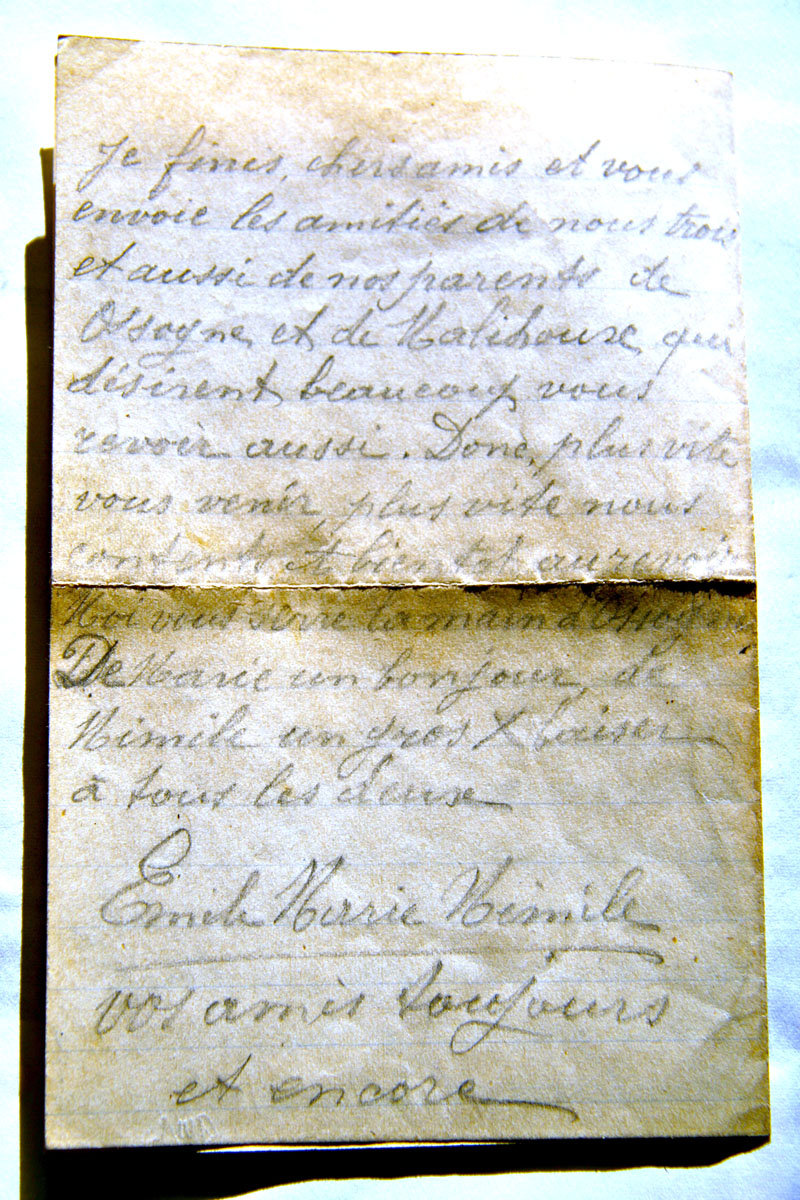 Je finis, chers amis et vous
envoie les amitiés de nous trois
et aussi de nos parents de
Ossogne et de Malihoux qui
désirent beaucoup vous
revoir aussi. Donc, plus vite
vous venir, plus vite nous
contents et bientot au revoir
Moi vous serre la main d'Ossogne
De Marie un bonjour, de
Mimile un gros X baiser
à tous les deux
Emile Marie Mimile
vos amis toujours
et encore